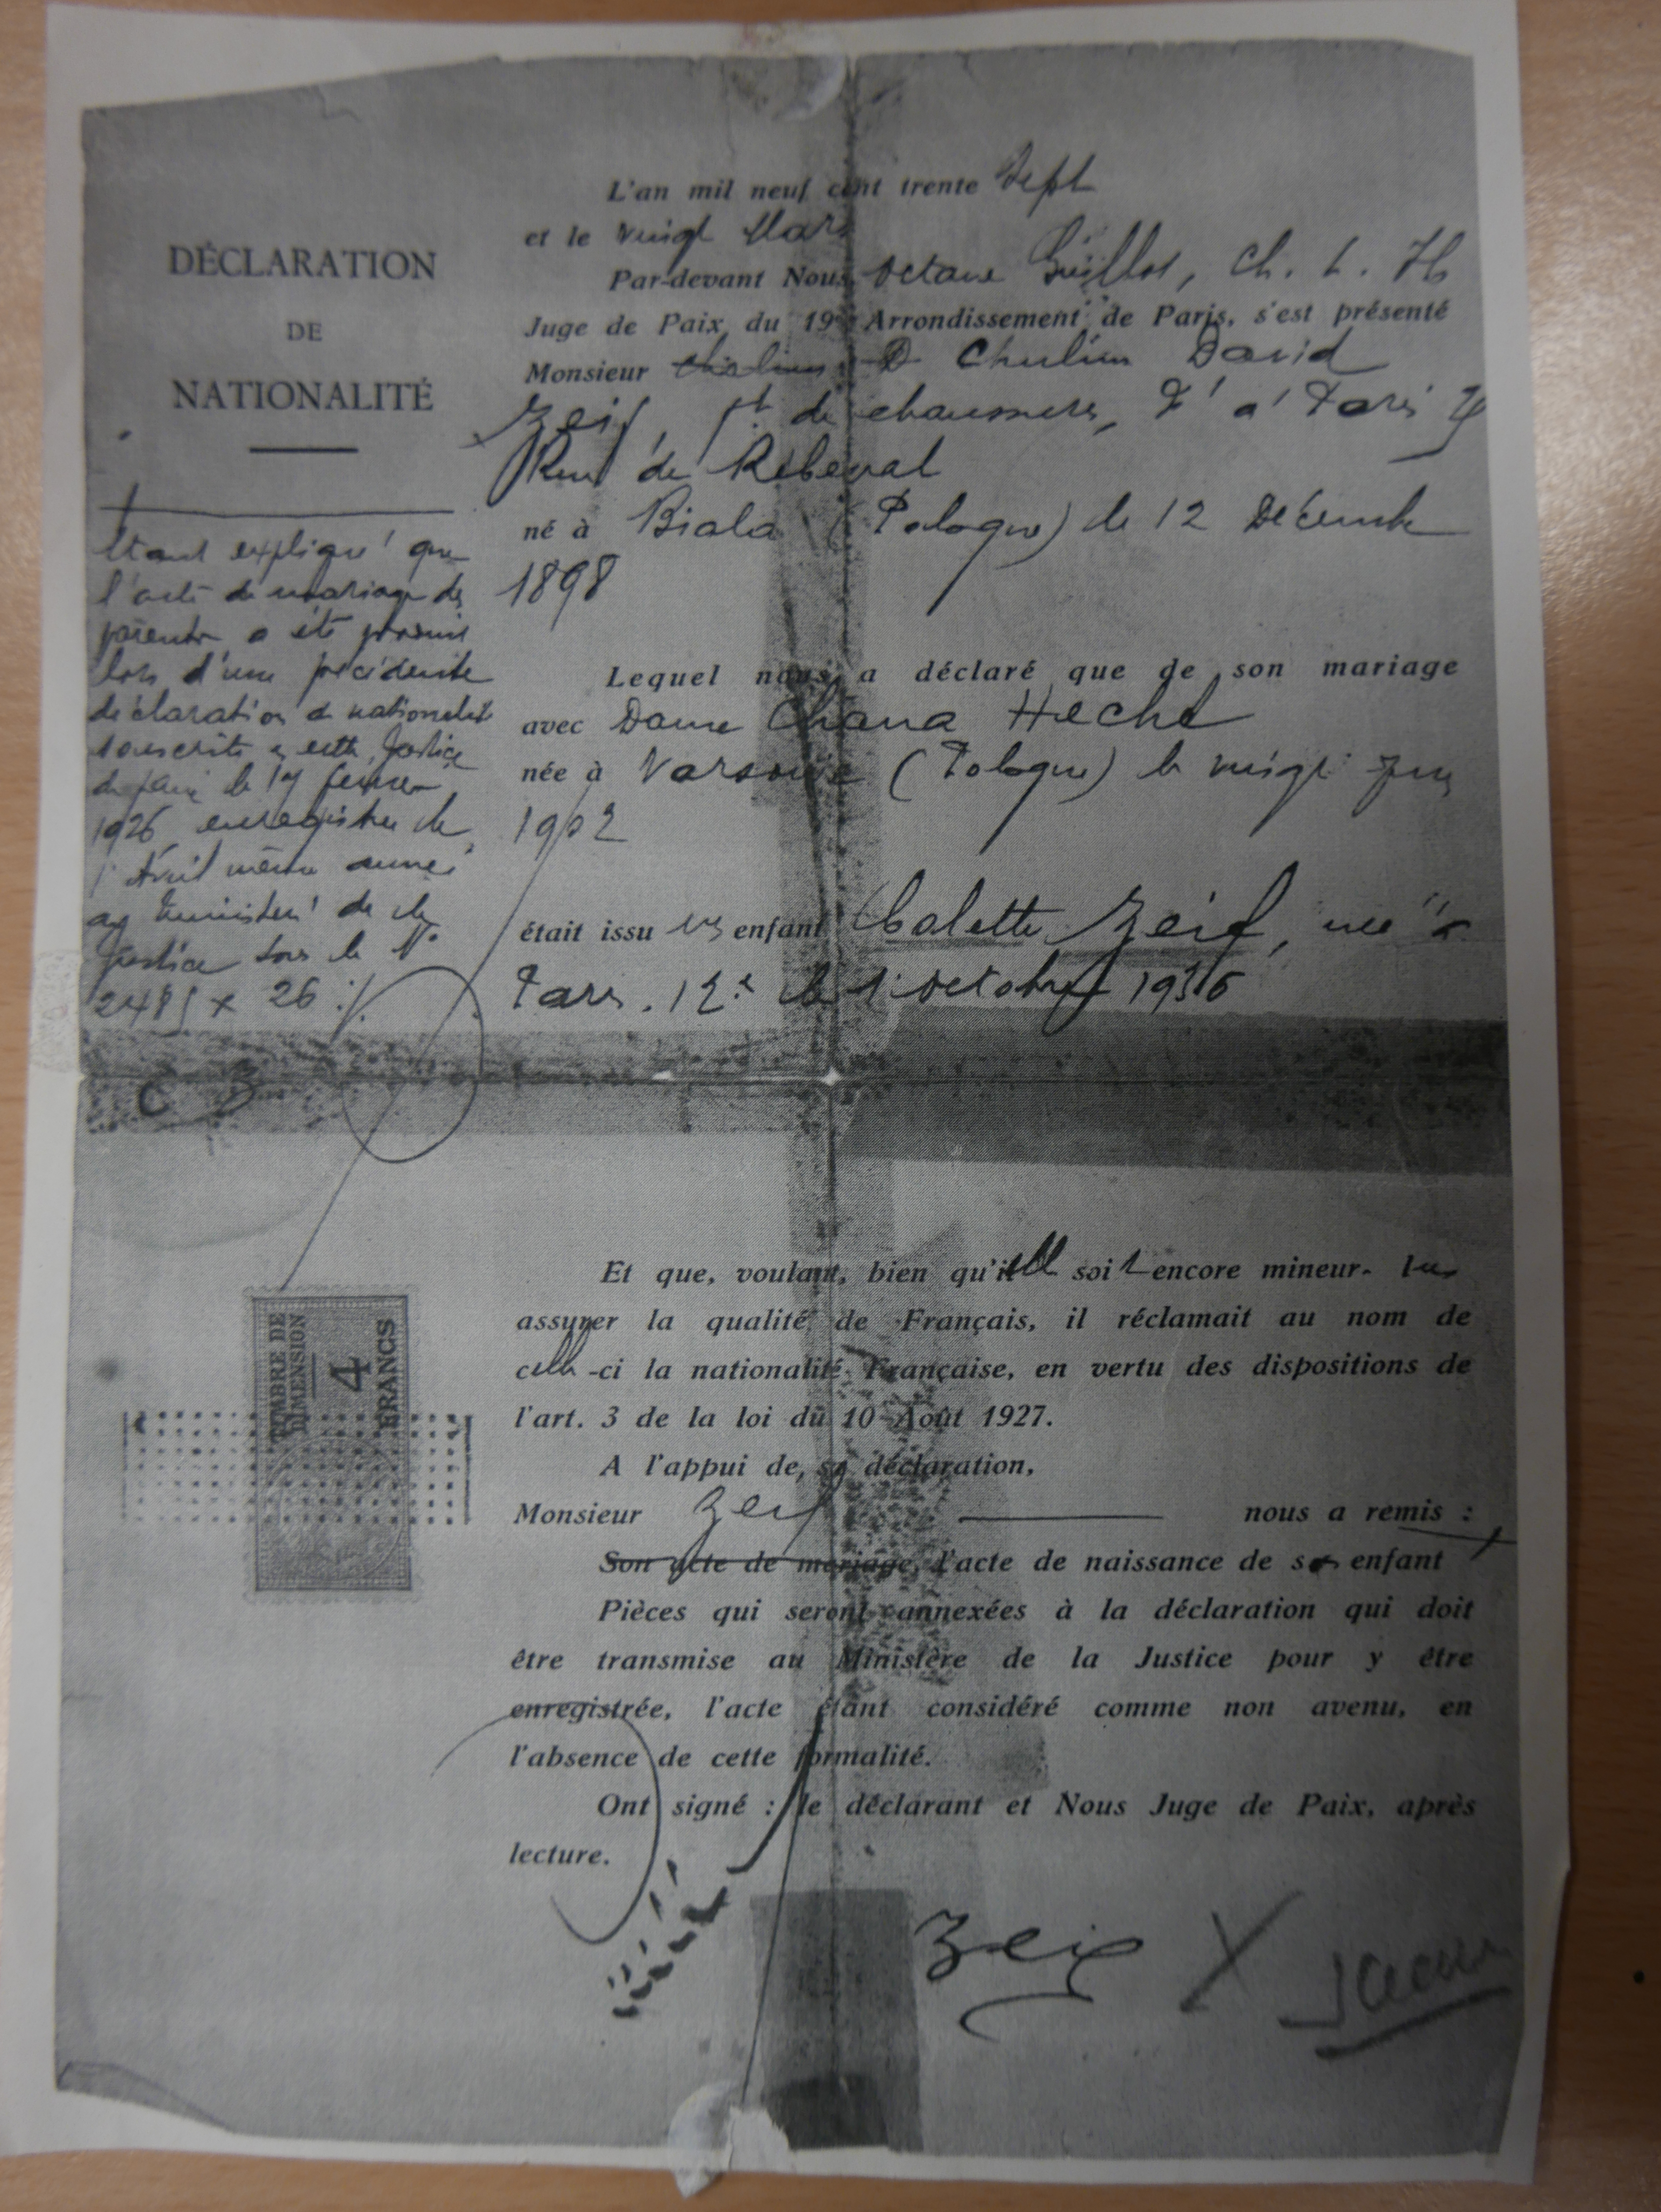 DÉCLARATION
DE
NATIONALITÉ
étant expliqué que
l'acte de mariage des
parents a été produit
lors d'une précédente
déclaration de nationalité
souscrite en cette Justice
de paix le février
1926 enregistrée le
1 Avril même année
au Ministère de la
Justice sous le N°
26
L'an mil neuf cent trente Sept
et le vingt Mars
Par-devant Nous Octave Guillot, Ch. L. H
Juge de Paix du 19e Arrondissement de Paris, s'est présenté
Monsieur Chulim David
Zeif, de chaussures, Dt à Paris
Rue de Rébeval
né à Biala (Pologne) le 12 Décembre
1898
Lequel nous a déclaré que de son mariage
avec Dame Chana Hecht
née à Varsovie (Pologne) le vingt
1902
était issu un enfant Colette Zeif, née à
Paris. 12e le 1er octobre 1936
C 3
TIMBRE DE
DIMENSION
4
FRANCS
Et que, voulant, bien qu'elle soit encore mineur- lui
assurer la qualité de Français, il réclamait au nom de
celle-ci la nationalité Française, en vertu des dispositions de
l'art. 3 de la loi du 10 Août 1927.
A l'appui de sa déclaration,
Monsieur Zeif nous a remis :
Son acte de mariage, l'acte de naissance de son enfant
Pièces qui seront annexées à la déclaration qui doit
être transmise au Ministère de la Justice pour y être
enregistrée, l'acte étant considéré comme non avenu, en
l'absence de cette formalité.
Ont signé : le déclarant et Nous Juge de Paix, après
lecture.
Zeif